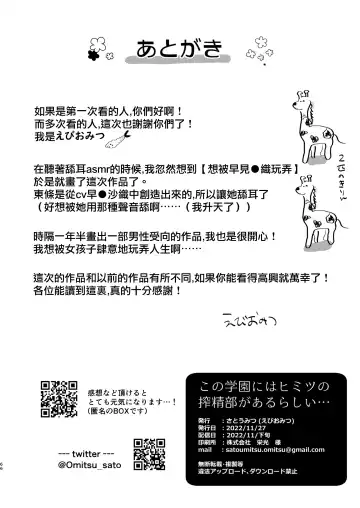 あとがき
如果是第一次看的人,你們好啊！
而多次看的人,這次也謝謝你們了！
我是えびおみつ
在聽著舔耳asmr的時候,我忽然想到【想被早見●織玩弄】
於是就畫了這次作品了。
東條是從cv早●沙織中創造出來的,所以讓她舔耳了
（好想被她用那種聲音舔啊……（我升天了））
時隔一年半畫出一部男性受向的作品,我也是很開心！
我想被女孩子肆意地玩弄人生啊！
這次的作品和以前的作品有所不同,如果你能看得高興就萬幸了！
各位能讀到這裏,真的十分感謝！
えびおみつ
感想など頂けると
とても元気になります…！
(匿名のBOXです)
--- twitter ---
@Omitsu_sato
この学園にはヒミツの
搾精部があるらしい…
発行　：さとうみつ (えびおみつ)
発行日：2022/11/27
配信日：2022/11/下旬
印刷所：株式会社　栄光　様
mail　：satoumitsu.omitsu@gmail.com
無断転載・複製等
違法アップロード、ダウンロード禁止